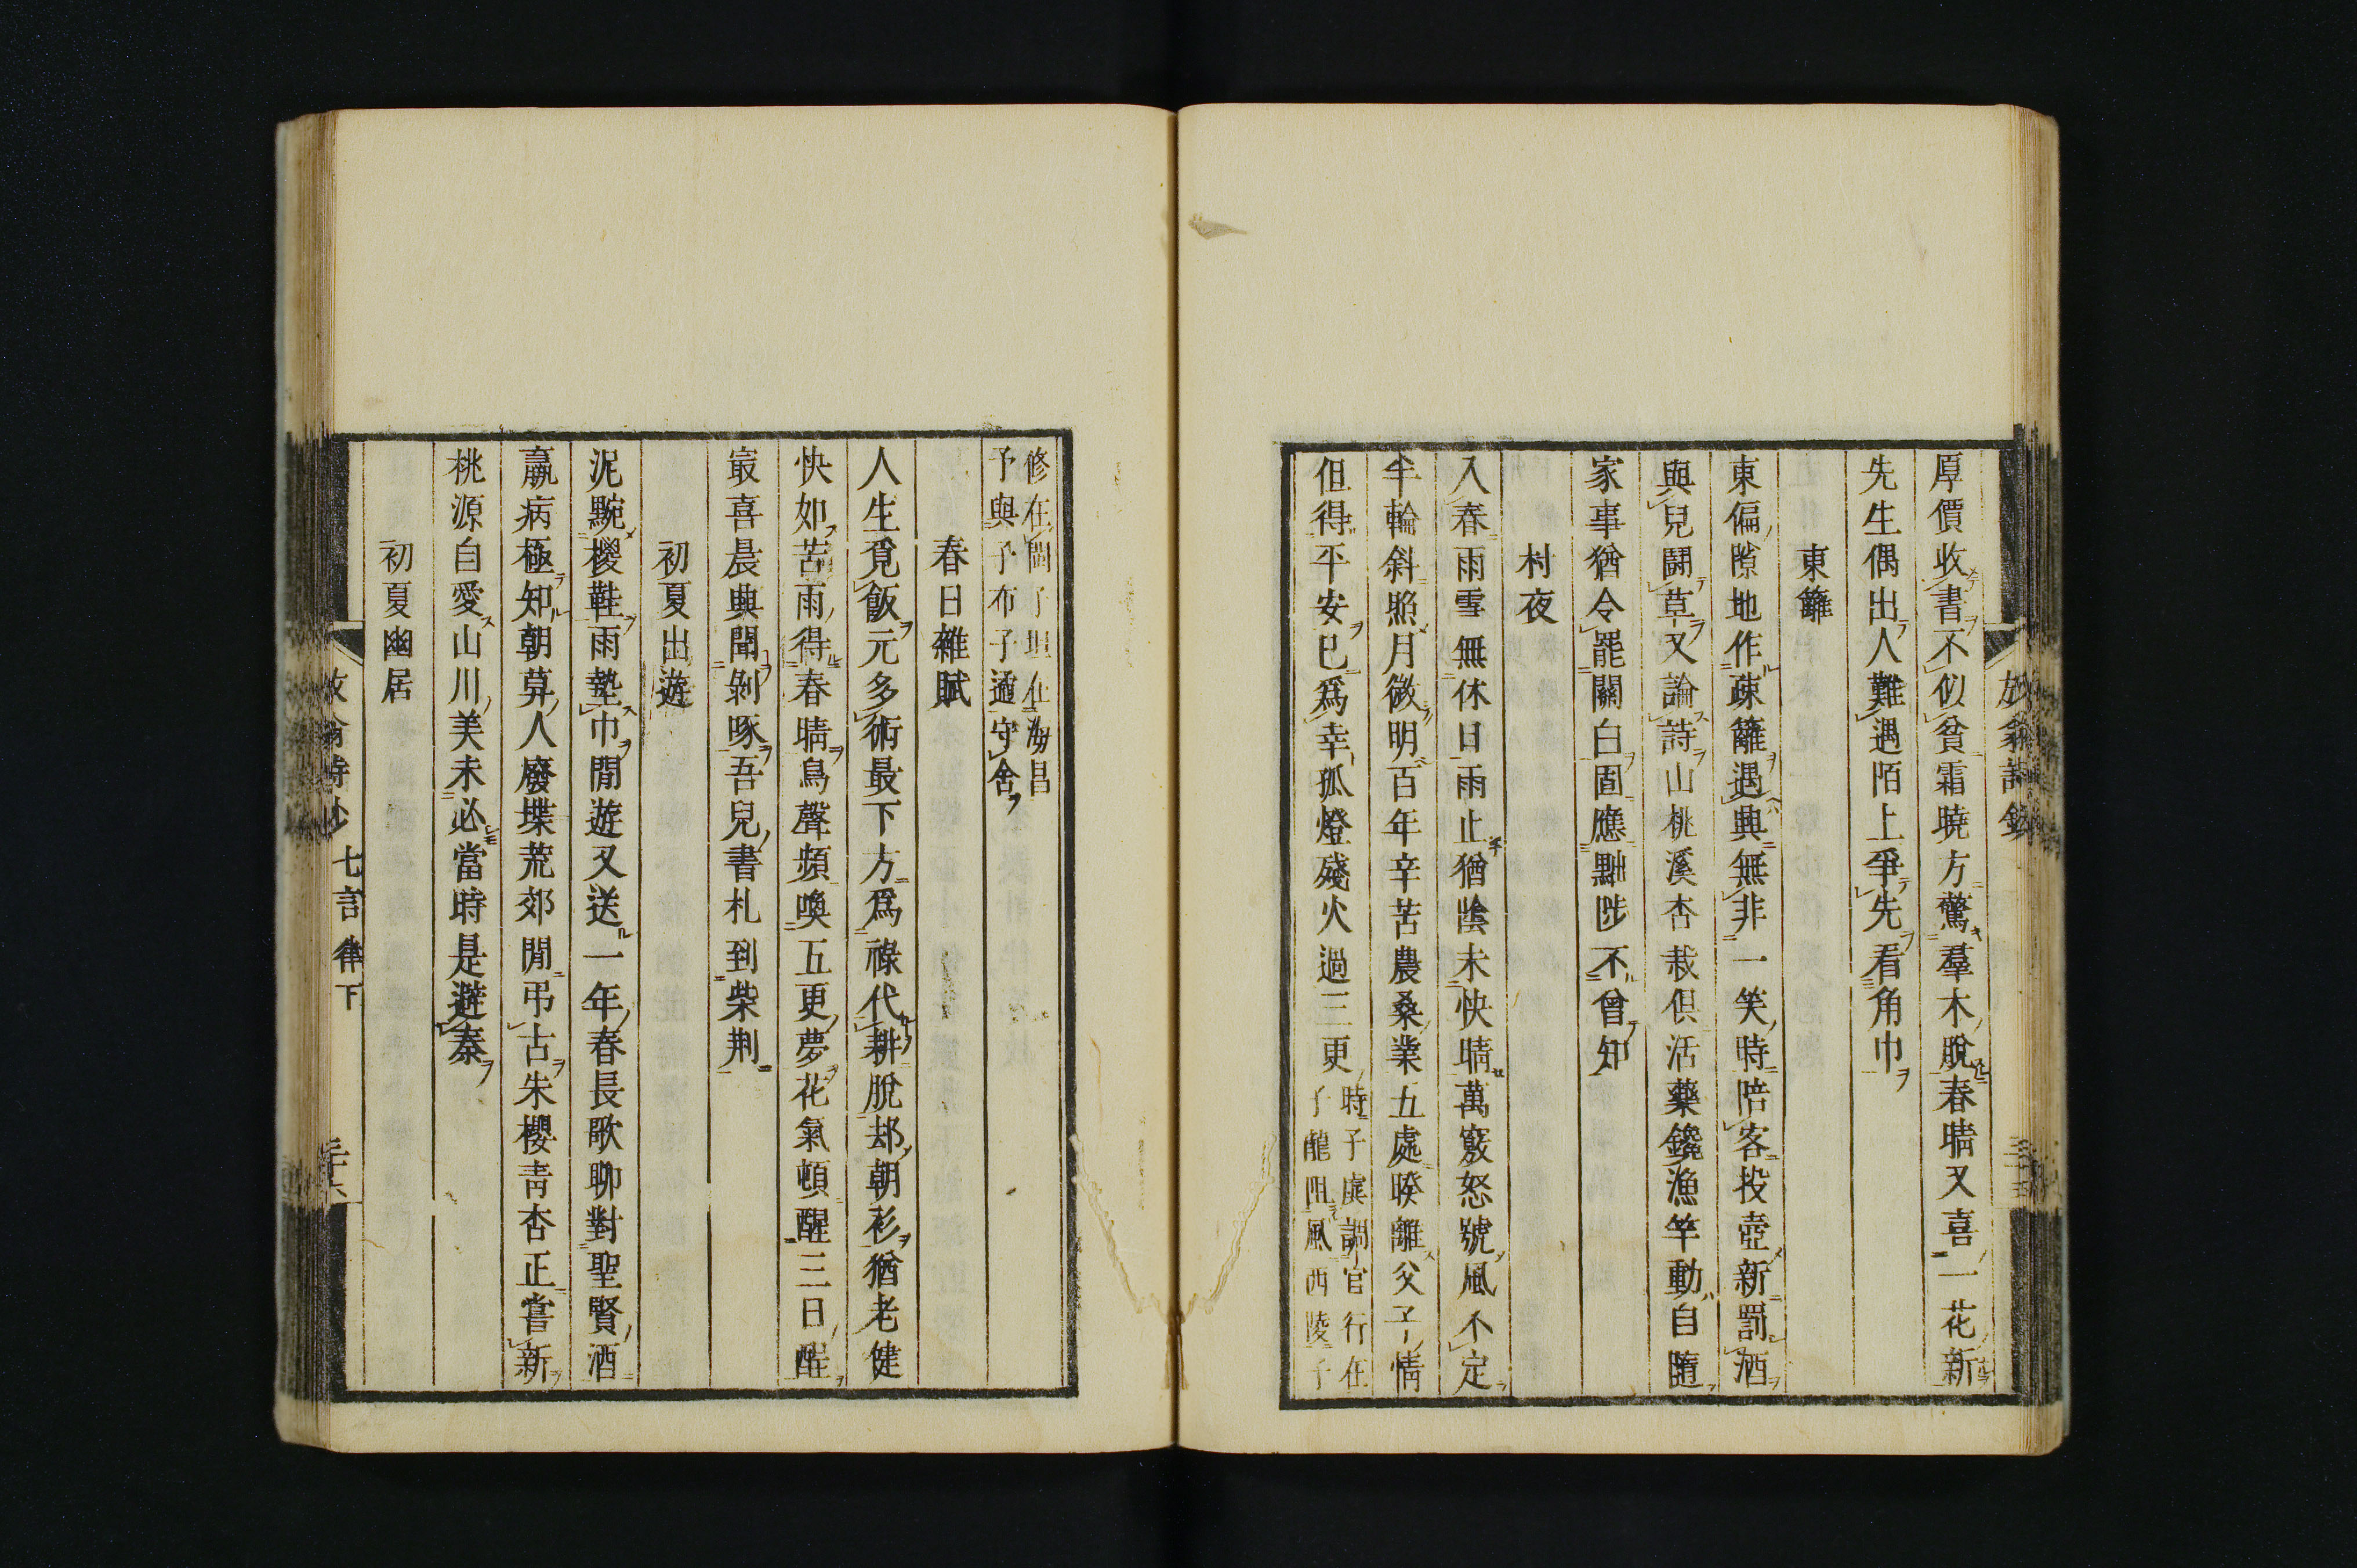 厚價收書不似貧霜曉方驚羣木脫春晴又喜一花新
先生偶出人難遇陌上爭先看角巾
東籬
東偏隙地作疎籬遇興無非一笑時陪客投壺新罰酒
與兒鬪草又論詩山桃溪杏栽俱活藥鑱漁竿動自隨
家事猶令罷關白固應黜陟不曾知
村夜
入春雨雪無休日雨止猶陰未快晴萬竅怒號風不定
半輪斜照月微明百年辛苦農桑業五處暌離父子情
但得平安已爲幸孤燈殘火過三更
時子虡調官行在
子龍阻風西陵子
修在閩子坦在海昌
予與子布子遹守舍
春日雜賦
人生覓飯元多術最下方爲祿代耕脫却朝衫猶老健
快如苦雨得春晴鳥聲頻喚五更夢花氣頓醒三日酲
最喜晨興聞剝啄吾兒書札到柴荆
初夏出遊
泥黦椶鞋雨墊巾閒遊又送一年春長歌聊對聖賢酒
羸病極知朝莫人廢堞荒郊閒弔古朱櫻靑杏正嘗新
桃源自愛山川美未必當時是避秦
初夏幽居
放翁詩鈔
七言律下